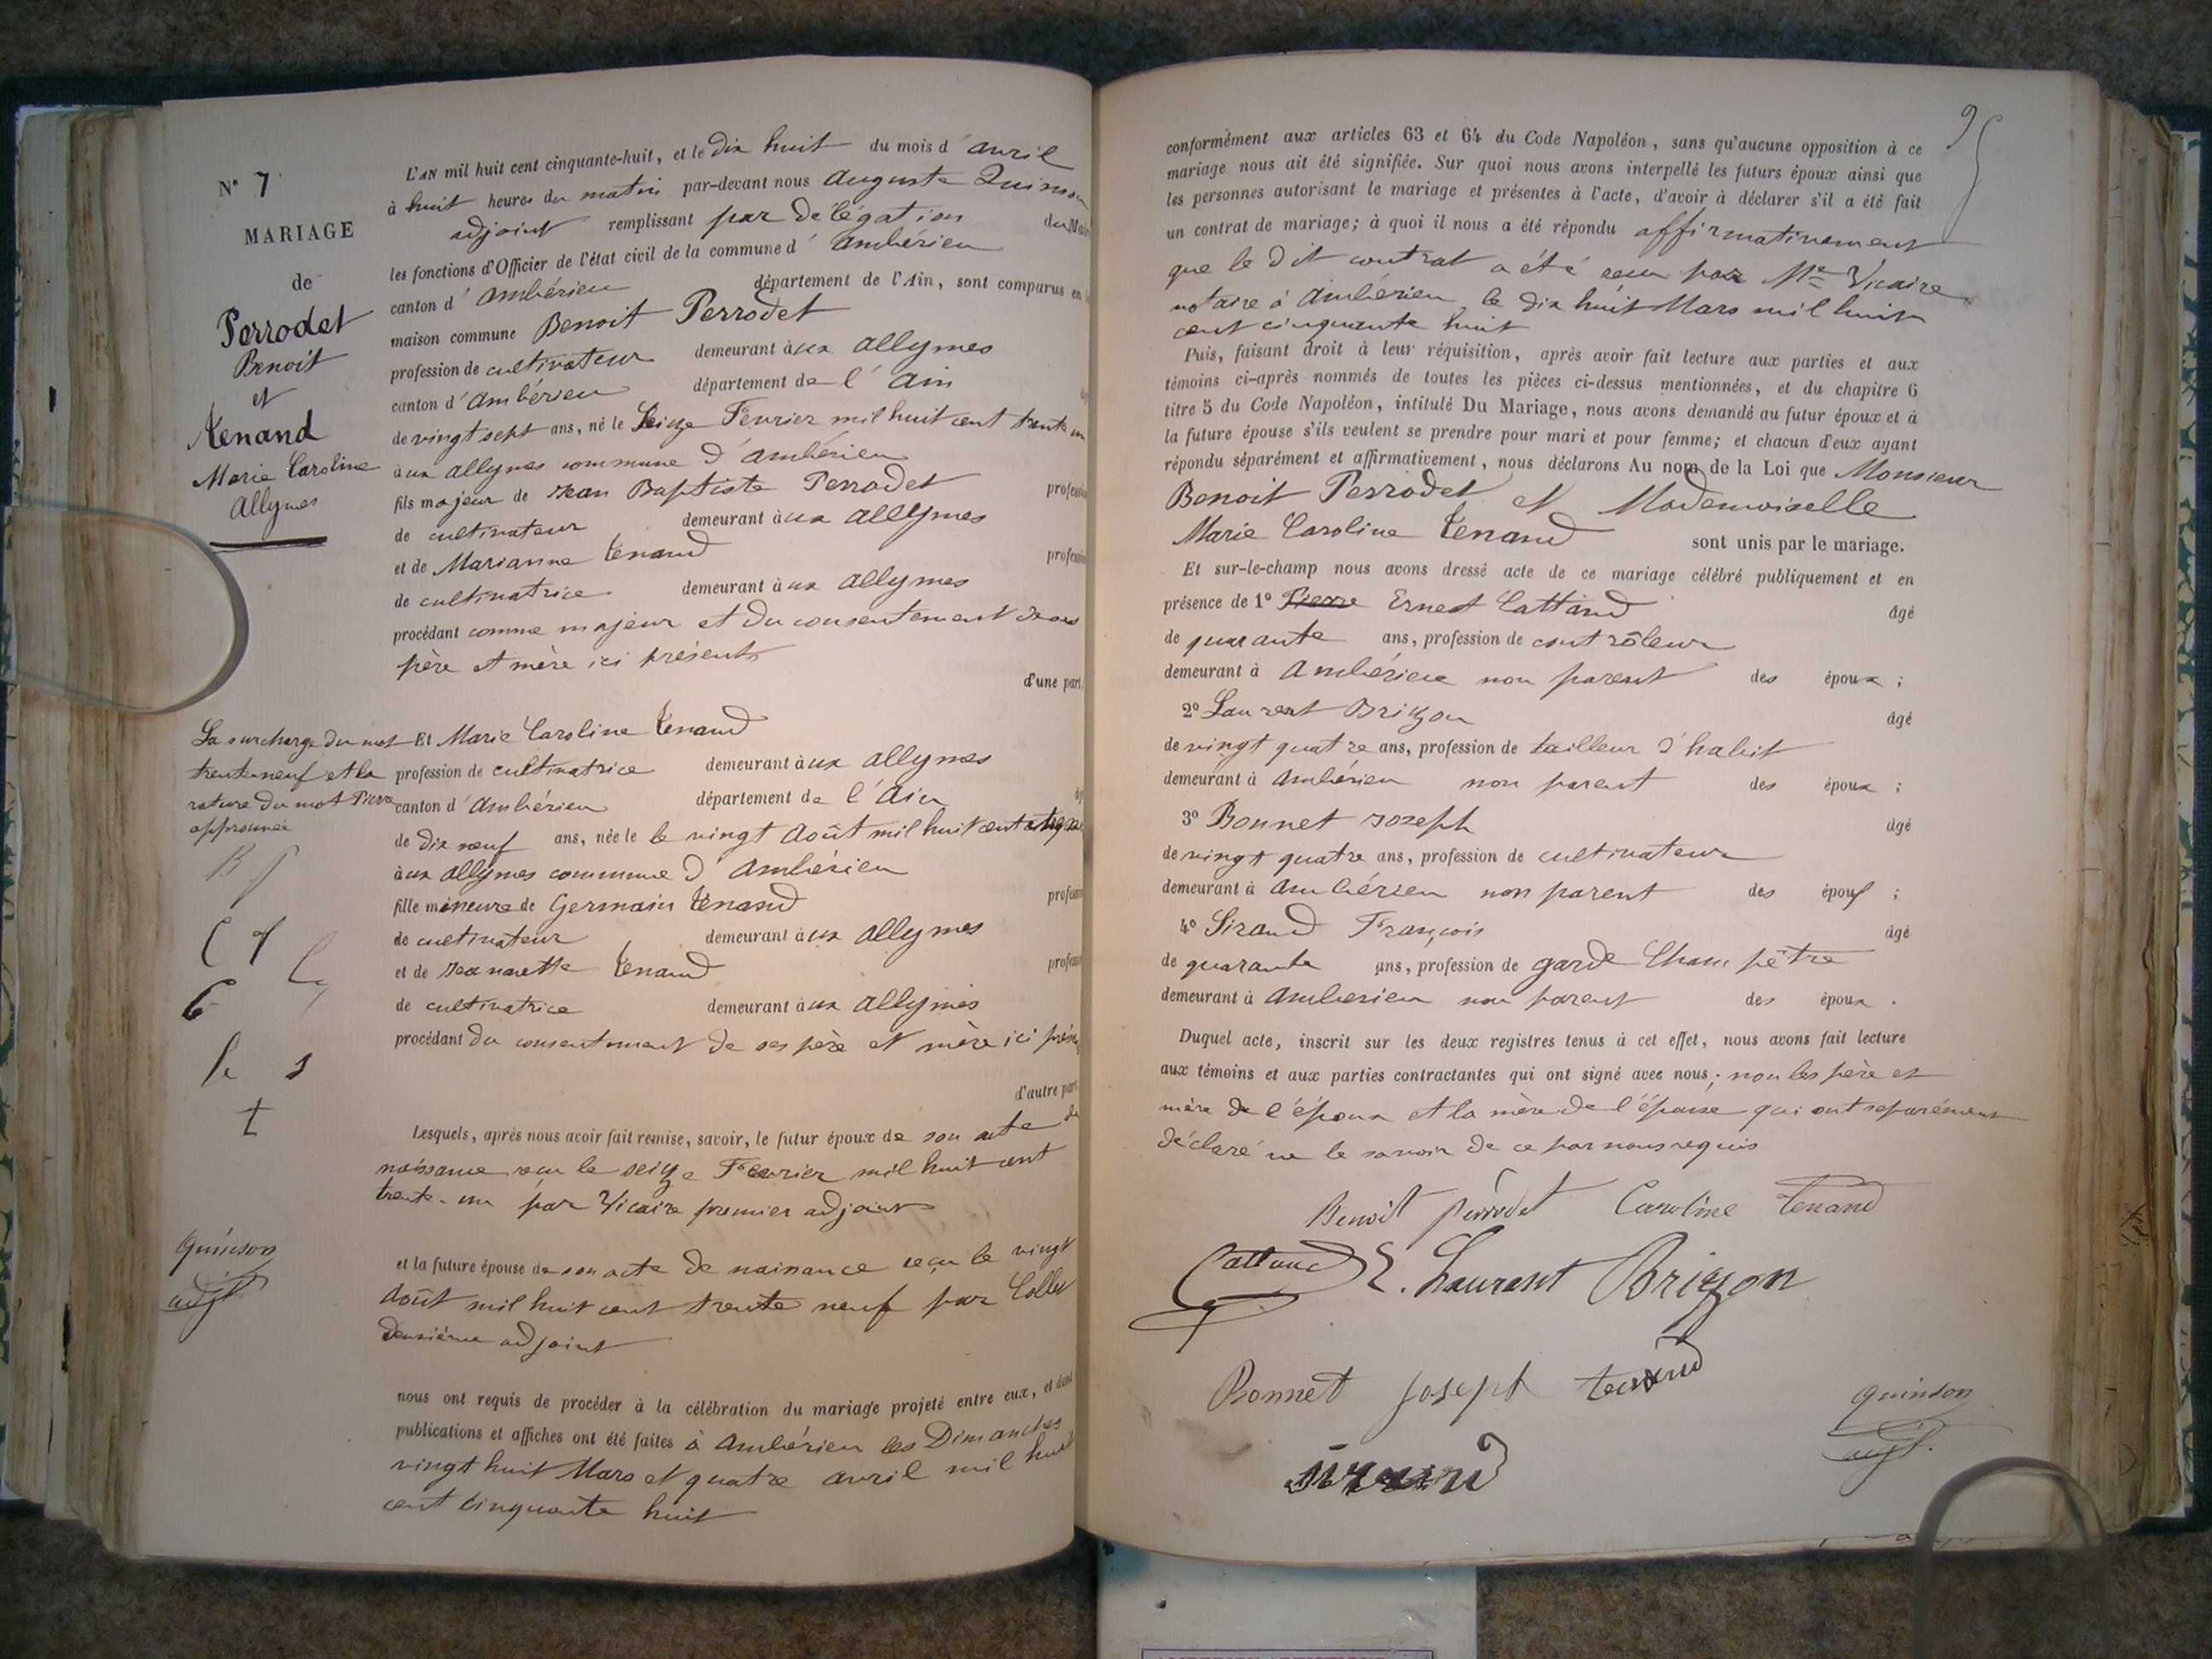 N° 7
MARIAGE
de
Perrodet
Benoit
et
Tenand
Marie Caroline
Allymes
L'AN mil huit cent cinquante-huit, et le dix huit du mois d'avril
à huit heures du matin par-devant nous Auguste Quinson
adjoint remplissant par délégation du Maire
les fonctions d'Officier de l'état civil de la commune d'Ambérieu
canton d'Ambérieu département de l'Ain, sont comparus en la
maison commune Benoit Perrodet
profession de cultivateur demeurant à ux allymes
canton d'Ambérieu département de l'Ain
de vingt sept ans, né le Seize Février mil huit cent trente un
à ux allymes commune d'Ambérieu
fils majeur de Jean Baptiste Perrodet profession
de cultivateur demeurant à ux allymes
et de Marianne tenand profession
de cultivatrice demeurant à ux allymes
procédant comme majeur et du consentement de ses
père et mère ici présents
d'une part;
La surcharge du mot
trente neuf et la
rature du mot Pierre
approuvée
Et Marie Caroline tenand
profession de cultivatrice demeurant à ux allymes
canton d'Ambérieu département de l'Ain
de dix neuf ans, née le le vingt Août mil huit cent
à ux allymes commune d'Ambérieu
fille mineure de Germain tenand profession
de cultivateur demeurant à ux allymes
et de Jeannette tenand profession
de cultivatrice demeurant à ux allymes
procédant du consentement de ses père et mère ici
d'autre part
Lesquels, après nous avoir fait remise, savoir, le futur époux de son acte de
naissance reçu le seize Février mil huit cent
trente-un par Vicaire premier adjoint
Quinson
adjt
et la future épouse de son acte de naissance reçu le vingt
Août mil huit cent trente neuf par Collet
deuxième adjoint
nous ont requis de procéder à la célébration du mariage projeté entre eux, et dont
publications et affiches ont été faites à Ambérieu les Dimanches
vingt huit Mars et quatre avril mil huit
cent cinquante huit
95
conformément aux articles 63 et 64 du Code Napoléon, sans qu'aucune opposition à ce
mariage nous ait été signifiée. Sur quoi nous avons interpellé les futurs époux ainsi que
les personnes autorisant le mariage et présentes à l'acte, d'avoir à déclarer s'il a été fait
un contrat de mariage; à quoi il nous a été répondu affirmativement
que le dit contrat a été reçu par Me Vicaire
notaire à Ambérieu le dix huit Mars mil huit
cent cinquante huit
Puis, faisant droit à leur réquisition, après avoir fait lecture aux parties et aux
témoins ci-après nommés de toutes les pièces ci-dessus mentionnées, et du chapitre 6
titre 5 du Code Napoléon, intitulé Du Mariage, nous avons demandé au futur époux et à
la future épouse s'ils veulent se prendre pour mari et pour femme; et chacun d'eux ayant
répondu séparément et affirmativement, nous déclarons Au nom de la Loi que Monsieur
Benoit Perrodet et Mademoiselle
Marie Caroline tenand sont unis par le mariage.
Et sur-le-champ nous avons dressé acte de ce mariage célébré publiquement et en
présence de 1° Pierre Ernest Cattand âgé
de quarante ans, profession de contrôleur
demeurant à Ambérieu non parent des époux ;
2° Laurent Brizon âgé
de vingt quatre ans, profession de tailleur d'habit
demeurant à Ambérieu non parent des époux ;
3° Bonnet Joseph âgé
de vingt quatre ans, profession de cultivateur
demeurant à Ambérieu non parent des époux ;
4° Sirand François âgé
de quarante ans, profession de garde Champêtre
demeurant à Amberieu non parent des époux .
Duquel acte, inscrit sur les deux registres tenus à cet effet, nous avons fait lecture
aux témoins et aux parties contractantes qui ont signé avec nous; non les père et
mère de l'époux et la mère de l'épouse qui ont séparément
déclaré ne le savoir de ce par nous requis
Benoit perrodet Caroline Tenand
Cattand E. Laurent Brizon
Bonnet Joseph tenand
Quinson
adjt.
Sirand